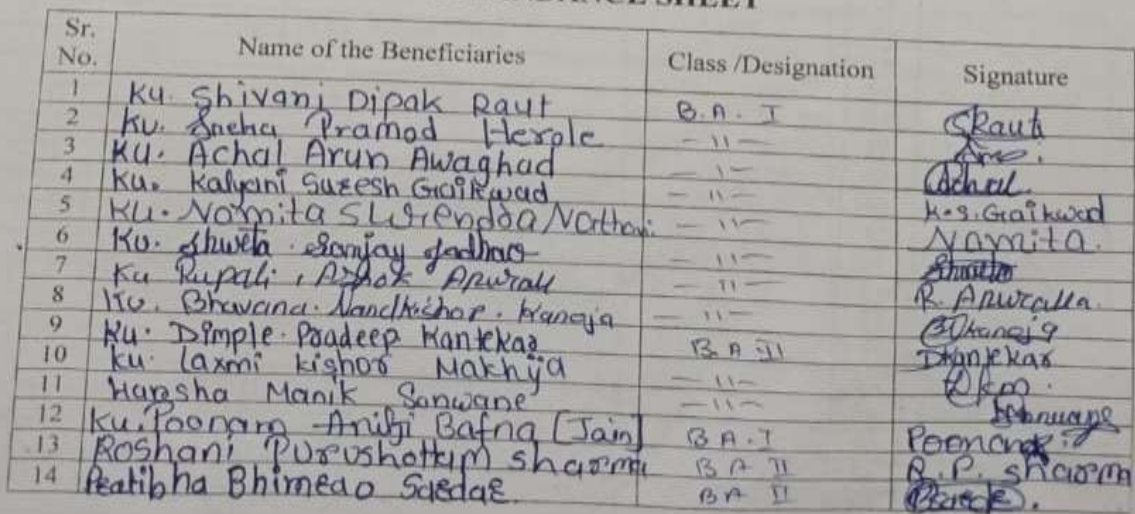 SHEET
Sr. No. Name of the Beneficiaries Class /Designation Signature
1 Ku. Shivani Dipak Raut B.A. I SRaut
2 Ku. Sneha Pramod Herole -11-
3 Ku. Achal Arun Awaghad -11- Achal
4 Ku. Kalyani Suresh Gaikwad -11- K.S. Gaikwad
5 Ku. Namita Surendra Nathani -11- Namita.
6 Ku. Shweta Sanjay Jadhao -11-
7 Ku Rupali Ashok Apurall -11- R. Apuralla.
8 Ku. Bhavana Nandkishor Kanoja -11- Bkanoja
9 Ku. Dimple Pradeep Kantekar B A II DKantekar
10 Ku. Laxmi Kishor Makhija -11- Lkm.
11 Harsha Manik Sonwane -11-
12 Ku. Poonam Bafna [Jain] B A. I Poonam
13 Roshani Purushottam Sharma B A II R.P. Sharma
14 Pratibha Bhimrao Sardar B A II